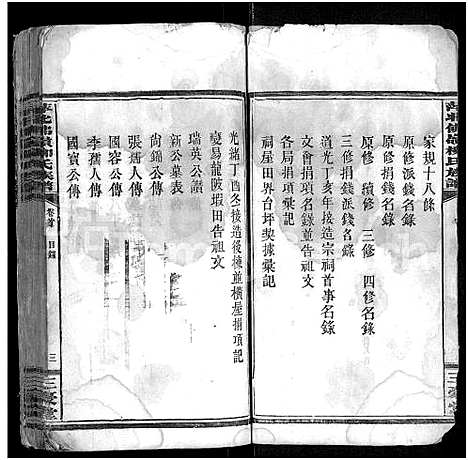 家規十八條
原修派錢名錄
原修 續修 三修 四修名錄
三修派錢名錄
道光丁亥年接造宗祠首事名錄
文會捐項名錄並告祖文
各房捐項彙記
祠屋田界台坪契據彙記
光緒丁酉冬接造後棟並橫屋捐項記
變易龍陂塅田告祖文
瑞英公譜
新公墓表
尚錦公傳
張儒人傳
李孺人傳
國賓公傳
卷首 目錄
三